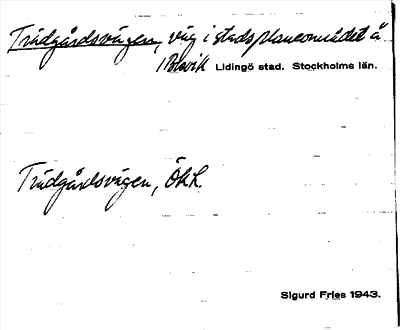 Trädgårdsvägen, väg i stadsplaneområdet å
Bosvik Lidingö stad. Stockholms län.
Trädgårdsvägen, ÖhL.
Sigurd Fries 1943.